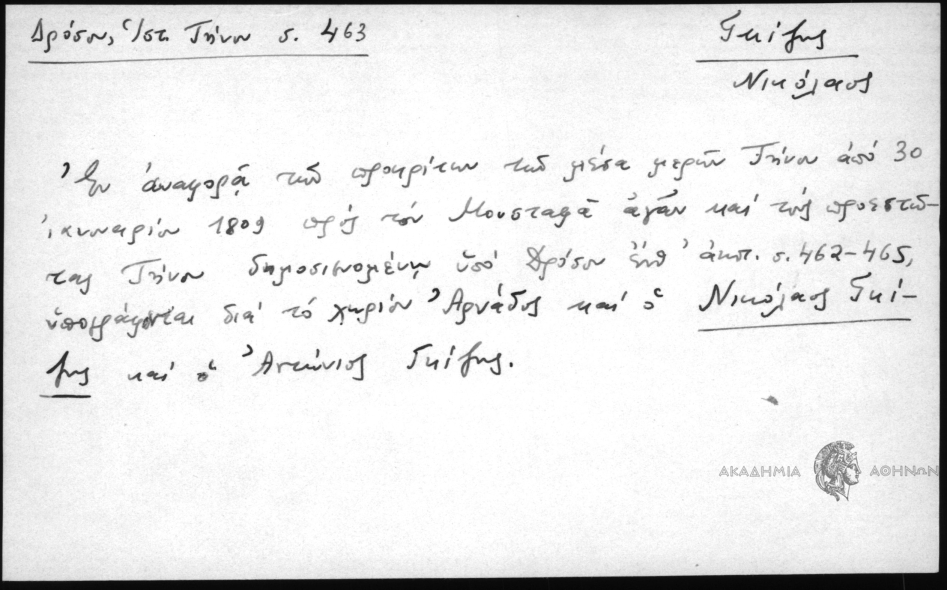 Δρόσου, Ἱστ. Τήνου σ. 463
Γκίζης
Νικόλαος
Ἐν ἀναφορᾷ τῶν προκρίτων τῶν μέσα μερῶν Τήνου ἀπό 30
ἰανουαρίου 1809 πρός τόν Μουσταφᾶ ἀγᾶν καί τούς προεστῶ-
τας Τήνου δημοσιευομένῃ ὑπό Δρόσου ἔνθ' ἀνωτ. σ. 462-465,
ὑπογράφονται διά τό χωρίον Ἀρνάδος καί ὁ Νικόλαος Γκί-
ζης καί ὁ Ἀντώνιος Γκίζης.
ΑΚΑΔΗΜΙΑ ΑΘΗΝΩΝ